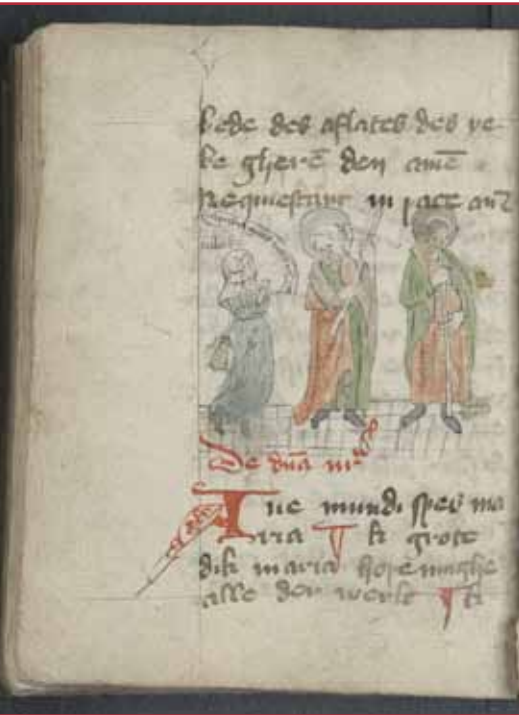 bede des aflates des ve
le gherē den amē
Requiescant in pace am
De dn̄a
Aue mundi spes ma
ria Ik grote
dik maria
alle der werlt Ik